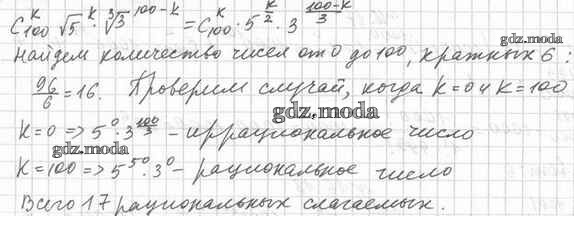 C₁₀₀ᵏ √5ᵏ · ∛3¹⁰⁰⁻ᵏ = C₁₀₀ᵏ · 5^(k/2) · 3^((100-k)/3)
Найдем количество чисел от 0 до 100, кратных 6 :
96/6 = 16. Проверим случай, когда k=0 и k=100
gdz.moda
gdz.moda
k=0 => 5⁰·3^(100/3) - иррациональное число
gdz.moda
k=100 => 5⁵⁰·3⁰ - рациональное число
Всего 17 рациональных слагаемых.